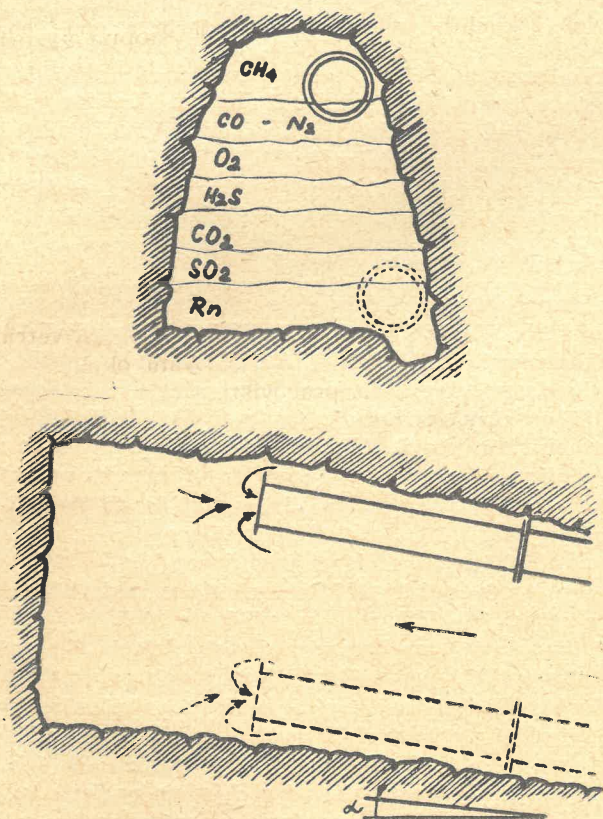 CH₄
CO - N₂
O₂
H₂S
CO₂
SO₂
Rn
α